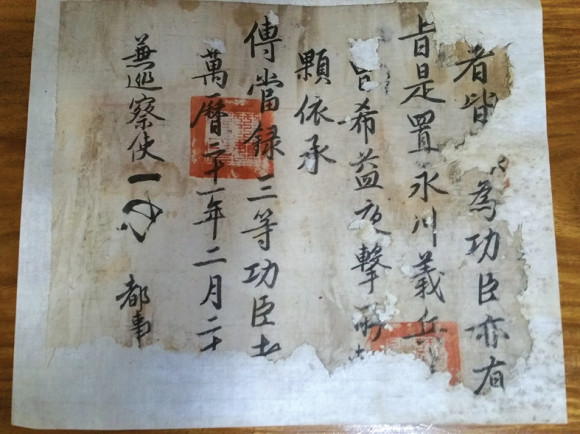 者皆 為功臣亦有
旨是置永川義兵
希益夜擊
顆依承
傳當錄三等功臣
萬曆二十一年二月二十
兼巡察使 都事